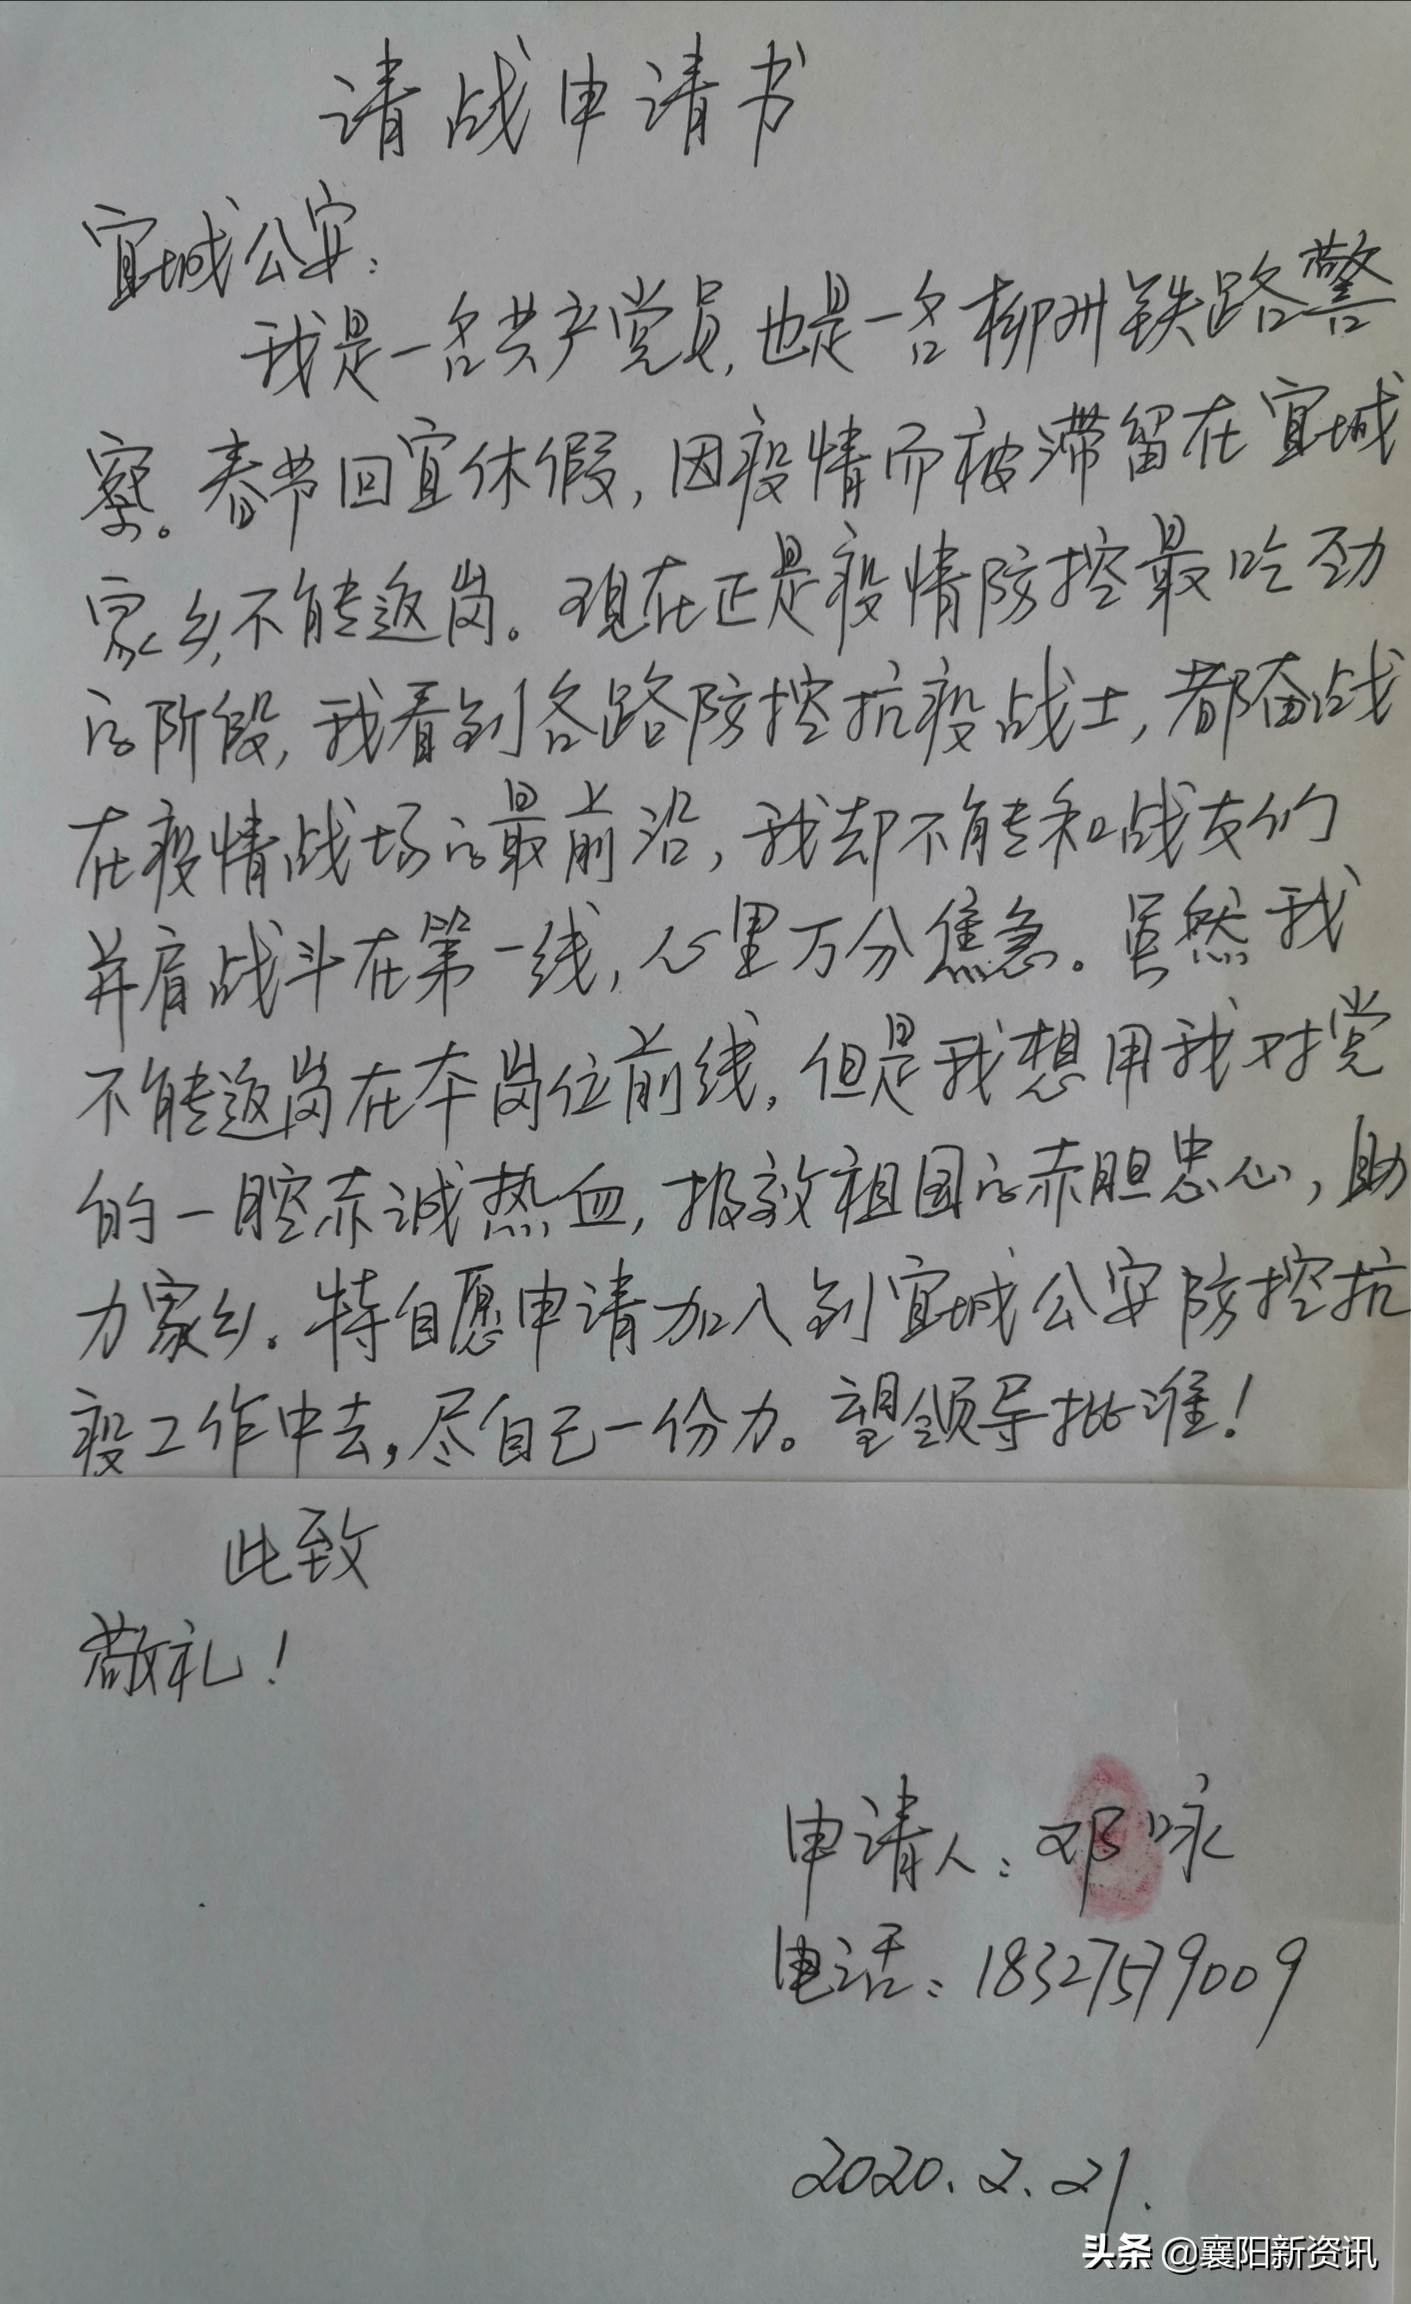 请战申请书
宜城公安：
我是一名共产党员，也是一名柳州铁路警
察。春节回宜休假，因疫情而被滞留在宜城
家乡，不能返岗。现在正是疫情防控最吃劲
的阶段，我看到各路防控抗疫战士，都奋战
在疫情战场的最前沿，我却不能和战友们
并肩战斗在第一线，心里万分焦急。虽然我
不能返岗在本岗位前线，但是我想用我对党
的一腔赤诚热血，报效祖国的赤胆忠心，助
力家乡。特自愿申请加入到宜城公安防控抗
疫工作中去，尽自己一份力。望领导批准！
此致
敬礼！
申请人：邓咏
电话：18327579009
2020.2.21.
头条 @襄阳新资讯